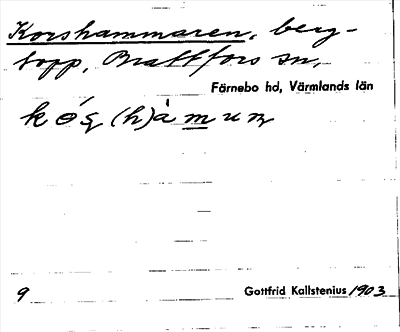 Korshammaren, berg-
topp, Brattfors sn,
Färnebo hd, Värmlands län
9
Gottfrid Kallstenius 1903